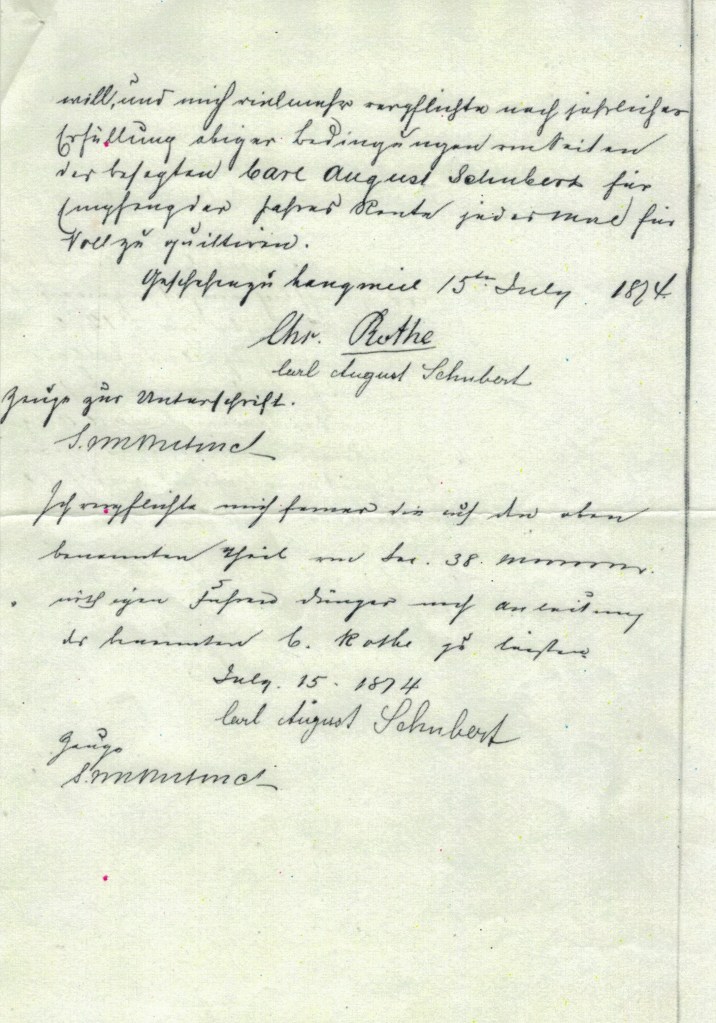 will, und mich vielmehr verpflichte nach jährlicher
Erfüllung obiger Bedingungen von Seiten
des besagten Carl August Schubert für
Empfang der Jahres Rente jedes Mal für
Voll zu quittiren.
Geschehen zu Langmeil 15ten July 1874
Chr. Rothe
Carl August Schubert
Zeuge zur Unterschrift.
Ich verpflichte mich ferner die auf den oben
benannten Theil von Sec. 38.
nöthigen Fuhren Dünger nach Anleitung
des benannten C. Rothe zu leisten
July. 15 - 1874
Carl August Schubert
Zeuge